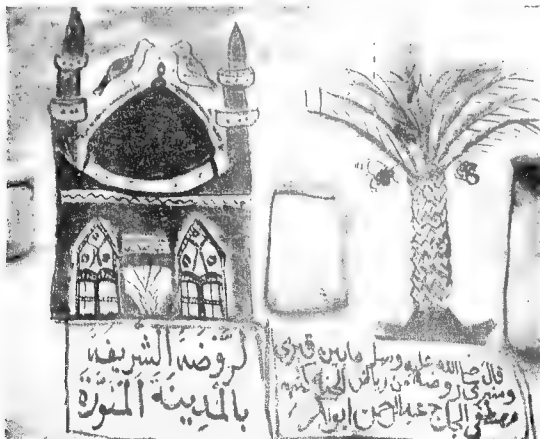 لروضة الشريفة
بالمدينة المنورة
قال صلى الله عليه وسلم ما بين قبري
ومنبري روضة من رياض الجنة كتبه
الحاج عبد الرحمن أبو بكر